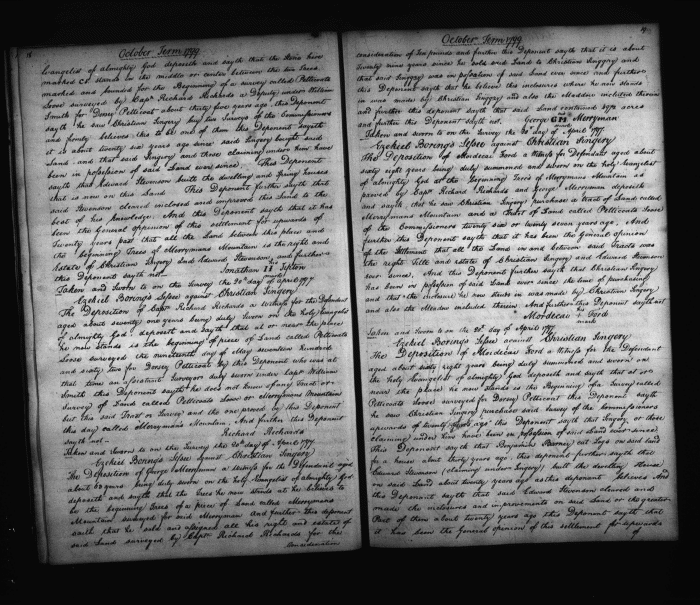 October Term 1799
Evangelist of almighty God deposeth and sayth that the trees here
marked CS stands in the middle or center between the two trees
marked and bounded for the Beginning of a survey called Petticoats
Loose surveyed by Capt. Richard Richards a Deputy under William
Smith for Dorsey Petticoat about thirty five years ago, this Deponent
sayth he saw Christian Singery buy two Surveys of the Commissioners
and firmly believes this to be one of them this Deponent Sayeth
it is about twenty six years ago since said Singery bought said
Land and that said Singery and those claiming under him have
been in possession of said Land ever since. This Deponent
sayth that Edward Stevenson built the dwelling and Spring houses
that is now on this Land This Deponent further sayth that
said Stevenson cleared inclosed and improved this Land to the
best of his knowledge. And this Deponent sayth that it has
been the General opinion of this settlement for upwards of
Twenty years past that all the Land between this place and
the beginning Trees of Merrymans Mountain is the right and
Estate of Christian Singery and Edward Stevenson, and further
this Deponent sayth not Jonathan Tipton
Taken and Sworn to on the Survey the 20th day of April 1797
Ezekiel Boring's Lessee against Christian Singery
The Deposition of Capt. Richard Richards a witness for the Defendant
aged about seventy one years being duly Sworn on the Holy Evangelist
of almighty God deposeth and sayth that at or near the place
he now stands is the beginning of a piece of Land called Petticoats
Loose surveyed the nineteenth day of May seventeen hundred
and sixty two for Dorsey Petticoat by this Deponent who was at
that time an assistant Surveyor duly sworn under Capt. William
Smith this Deponent sayth he does not know of any Tract or
Survey of Lands called Petticoats Loose or Merrymans Mountain
but this said Tract or Survey and the one proved by this Deponent
this day called Merrymans Mountain, And further this Deponent
sayth not Richard Richards
Taken and Sworn to on the Survey the 20th day of April 1797
Ezekiel Boring's Lessee against Christian Singery
The Deposition of George Merryman a witness for the Defendant aged
about 63 years being duly sworn on the holy Evangelist of almighty God
deposeth and sayth that the trees he now stands at he believes to
be the beginning trees of a piece of Land called Merrymans
Mountain surveyed for said Merryman And further this deponent
sayth that he sold and assigned all his right and estate of
said Land surveyed by Capt. Richard Richards for the
Consideration
October Term 1799
consideration of ten pounds and further this Deponent sayth that it is about
Twenty nine years since he sold said Land to Christian Singery and
that said Singery was in possession of said Land ever since and further
this Deponent sayth that he believes this inclosures where he now stands
in was made by Christian Singery and also the Meadow included therein
and further this deponent sayth that said Land contained acres
and further this Deponent sayth not. George GM Merryman
Taken and sworn to on the Survey the 20th day of April 1797.
Ezekiel Boring's Lessee against Christian Singery
The Deposition of Mordecai Ford a Witness for Defendant aged about
sixty eight years being duly summoned and sworn on the holy Evangelist
of almighty God at the Beginning Trees of Merrymans Mountain as
proved by Capt. Richard Richards and George Merryman deposeth
and sayth that he saw Christian Singery purchase a tract of Land called
Merrymans Mountain and a tract of Land called Petticoats Loose
of the Commissioners twenty six or twenty seven years ago, And
further this Deponent sayth that it has been the general opinion
of the Settlement that all the Land in and between said Tracts was
the right Title and estate of Christian Singery and Edward Stevenson
ever since. And this Deponent further sayth that Christian Singery
has been in possession of said Land ever since the time of purchasing
and that the inclosure he now stands in was made by Christian Singery
and also the Meadow included therein And further this Deponent sayth not
Mordecai his mark Ford
Taken and Sworn to on the 20th day of April 1797
Ezekiel Boring's Lessee against Christian Singery
The Deposition of Mordecai Ford a Witness for the Defendant
aged about sixty eight years being duly summoned and sworn on
the holy Evangelist of almighty God deposeth and sayth that at or
near the place he now stands is the Beginning of a Survey called
Petticoats Loose surveyed for Dorsey Petticoat this Deponent sayth
he saw Christian Singery purchase said Survey of the Commissioners
upwards of twenty years ago this Deponent sayth that Singery or those
claiming under him have been in possession of said Land ever since
This Deponent sayth that Benjamin Barney cut Logs on said Land
for a house about thirty years ago, this deponent further sayth that
Edward Stevenson (claiming under Singery) built the dwelling House
on said Land about twenty years ago as this deponent believes And
this Deponent sayth that said Edward Stevenson cleared and
made the inclosures and improvements on said Land or the greatest
Part of them about twenty years ago this Deponent sayth that
it has been the General opinion of this settlement for upwards
of